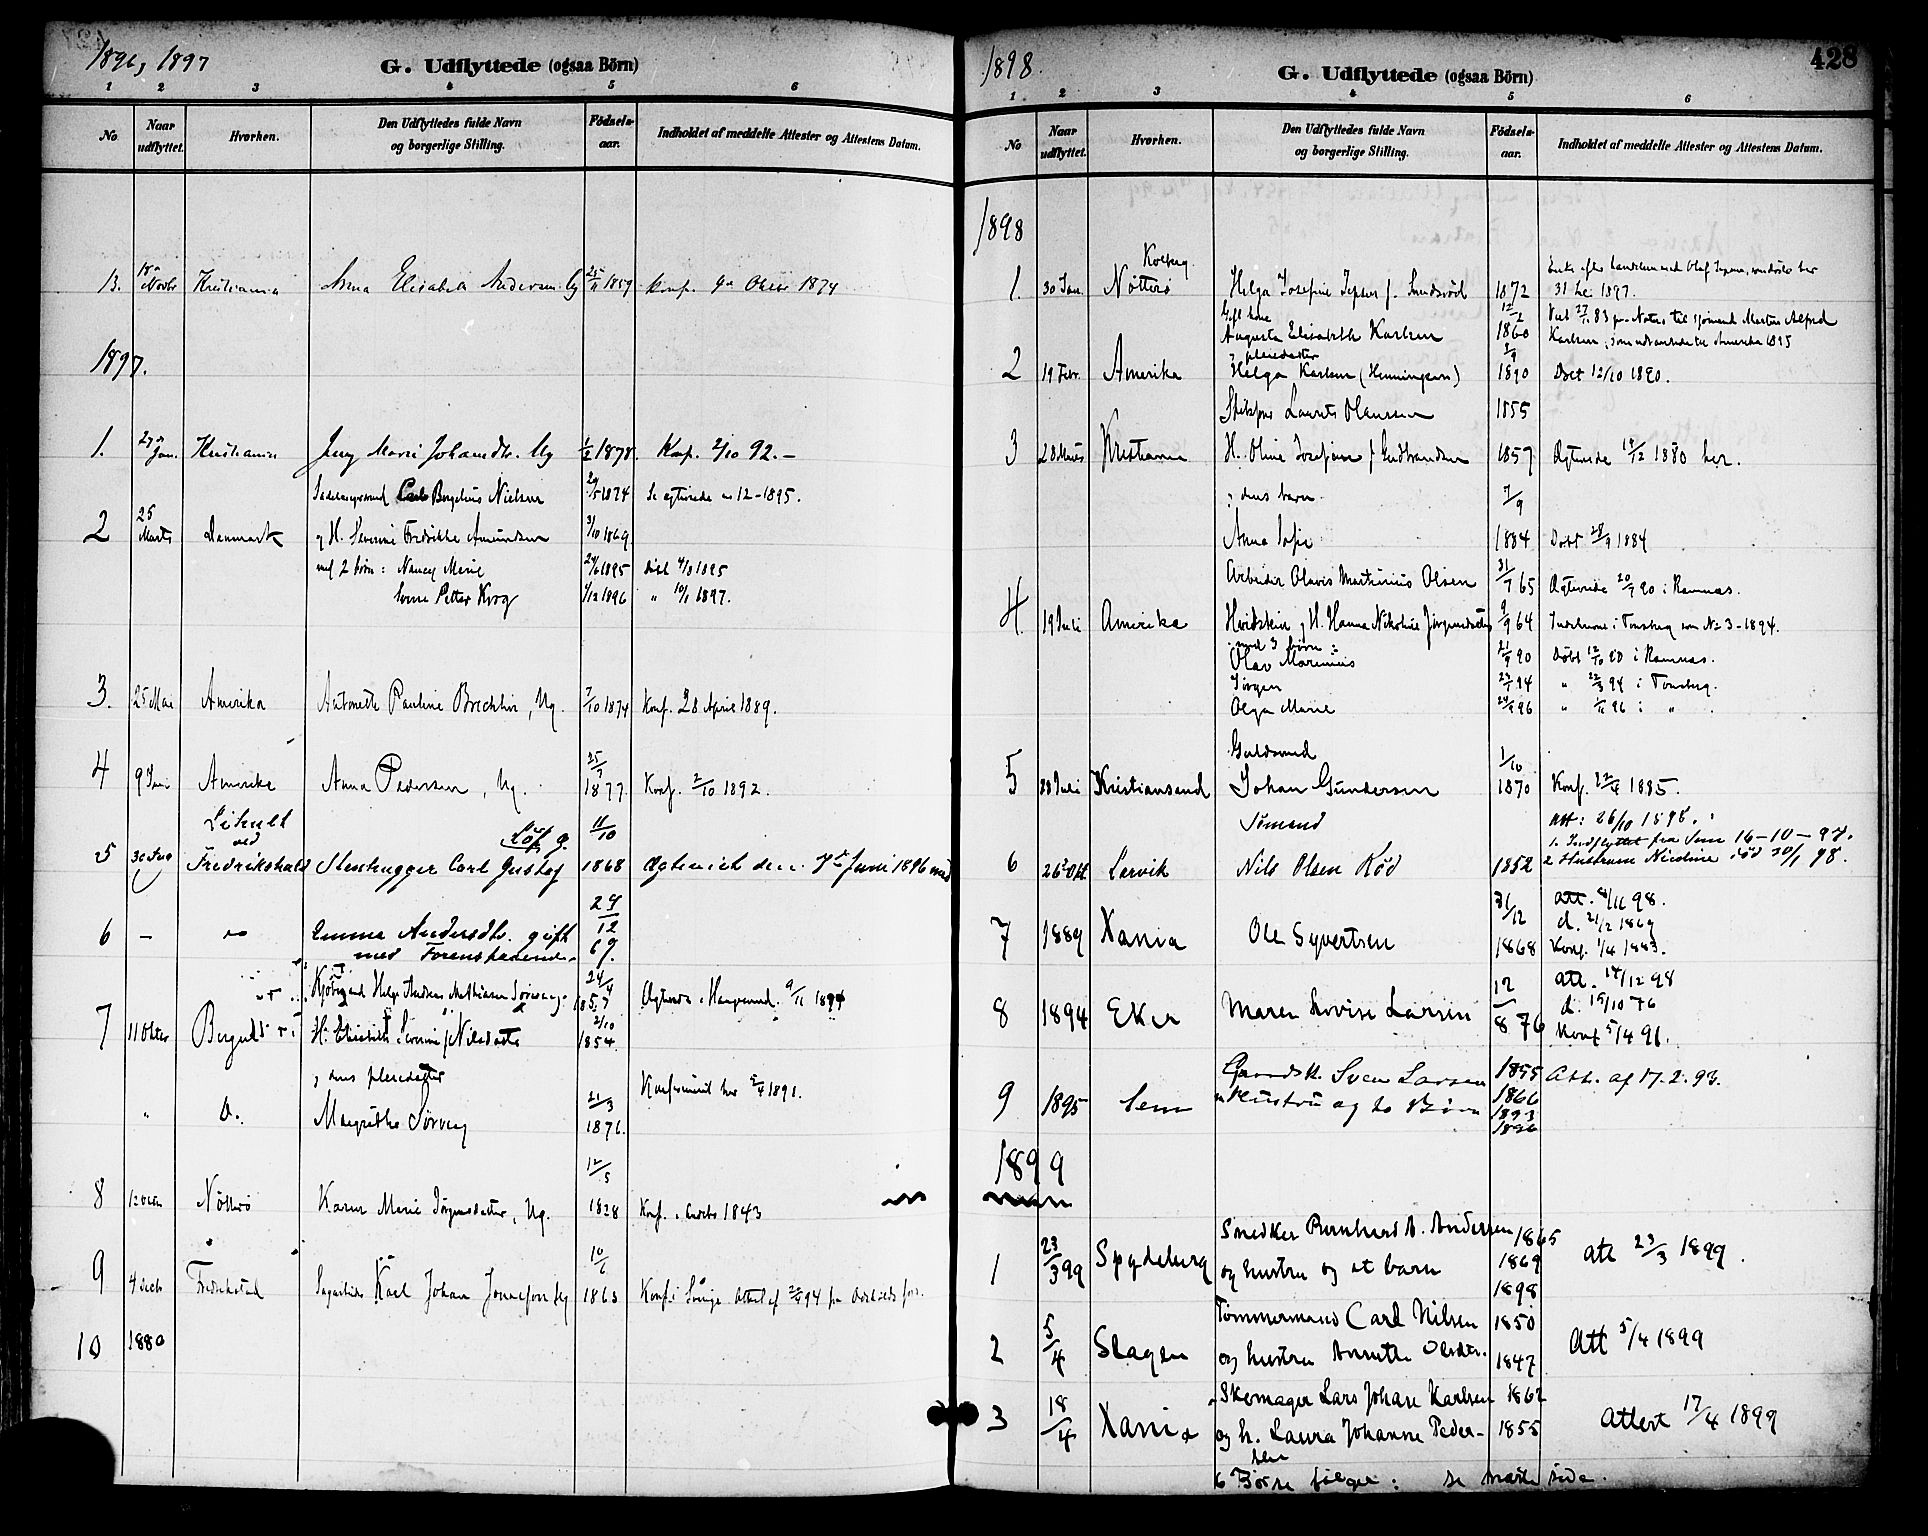 1896, 1897
G. Udflyttede (ogsaa Börn)
1 2 3 4 5 6
No Naar udflyttet. Hvorhen. Den Udflyttedes fulde Navn og borgerlige Stilling. Födsels-aar. Indholdet af meddelte Attester og Attestens Datum.
13. 18 Novbr Kristiania Anna Elisabeth Andersen Ug 25/11 1859 Konf. 1874
1897.
1. 27 Jan. Kristiania Jenny Marie Johansdtr. Ug 1/2 1878. Konf. 2/10 92. –
Carl Bergelius Nielsen 1874 Se egteviede no 12 - 1895.
2 25 Marts Danmark og H. Severine Fredrikke Amundsen 3/10 1869
med 2 børn: Nancy Marie 24/6 1895 4/8 1895
Petter Krog 4/12 1896 " 10/1 1897.
3. 25 Mai Amerika Antonette Pauline Brechlin, Ug. 7/10 1874 Konf. 28 April 1889.
4 9 Juni Amerika Anna Pedersen, Ug. 25/7 1877 Konf. 2/10 1892.
ved
5 30 Aug Fredrikshald Stenhugger Carl Gustaf Löf g. 11/10 1868 Egteviet den 7de Juni 1896 med
6 – Emma Andersdtr. gift 24/12
med Forenstaaende. 69.
7 11 Okter Helge Andreas Mathiasen Sørvaag 24/4 1857 Egteviede i Haugesund 9/11 1894
H. Elisabeth Severine f. Nilsdatter 2/10 1854
og dens pleiedatter
" D. Margrethe Sørvaag 21/3 1876. Konfirmeret her 4/4 1891.
8 12 Okter Nötterö Karen Marie Jörgensdatter, Ug. 12/5 1828 Konf. 1843
9 4 Decb Fredrikstad Karl Johan Ug 10/6 1863 Konf. i Sverige. Attest af 94
10 1880
428
1898.
G. Udflyttede (ogsaa Börn)
1 2 3 4 5 6
No Naar udflyttet. Hvorhen. Den Udflyttedes fulde Navn og borgerlige Stilling. Födsels-aar. Indholdet af meddelte Attester og Attestens Datum.
1898
1. 30 Jan. Nötterö Helga Josefine Jepsen f. Sundsröd 1872 Enke efter Olaf Jepsen,
31 1897.
Gift kone 12/2
Augusta Elisabeth Karlsen 1860 til sjømand Martin Alfred
og pleiedatter Karlsen, som udvandrede til Amerika 1895
2 19 Febr. Amerika Helga Karlsen (Henningsen) 1890 Døbt 12/10 1890.
Laurits Olaussen 1855
3 28 Marts Kristiania H. Oline Josefine f. Gulbrandsen 1857 Egteviede 18/12 1880 her.
og dens barn 7/9
Anna Sofie 1884 Døbt 28/9 1884
Arbeider Olavis Martinius Olsen 31/7 65 Egteviede 20/9 90 i Ramnæs.
4. 19 Juli Amerika Hvidstein og H. Hanna Nikoline Jörgensdatter 9/9 64 Indskrevne i Tønsberg som No 3 - 1894.
med 3 børn:
Olav Marinius 21/9 90 Døbt 12/10 90 i Ramnæs.
Jørgen 23/1 94 " 22/3 94 i Tønsberg.
Olga Marie 96 " 96 i "
Guldsmed 1/10
5 28 Juli Kristiansand Johan Gundersen 1870 Konf. 22/4 1885.
Sömand Att: 26/10 1898.
1. Indflyttet fra Sem 16 - 10 - 97.
6 26 Okt Larvik Nils Olsen Röd 1852 2 Hustruen Nicoline död 30/1 98.
31/12 Att. 8/11 98.
d. 21/2 1869
7 1889 Xania Ole Syvertsen 1868 Konf. 1/4 1883.
12 Att. 14/12 98
d. 15/10 76
8 1894 Eker Maren Lovise Larsen 8 76 Konf 5/4 91.
Gaardsk. Sven Larsen 1855 Att. af 17. 2. 93.
9 1895 Sem m Hustru og to Börn 1866
1893
1896
1899
Snedker Bernhard A. Andersen 1865
1 23/3 99 Spydeberg og hustru og et barn 1869 att 23/3 1899.
1898
Tømmermand Carl Nilsen 1850
2 5/4 Slagen og hustru Annette Olsdtr. 1847 Att 5/4 1899
Skomager Lars Johan Karlsen 1862
3 18/4 Xania og h. Laura Johanne Peder- 1855 Attest 17/4 1899
sen
6 Börn følger: se næste side.